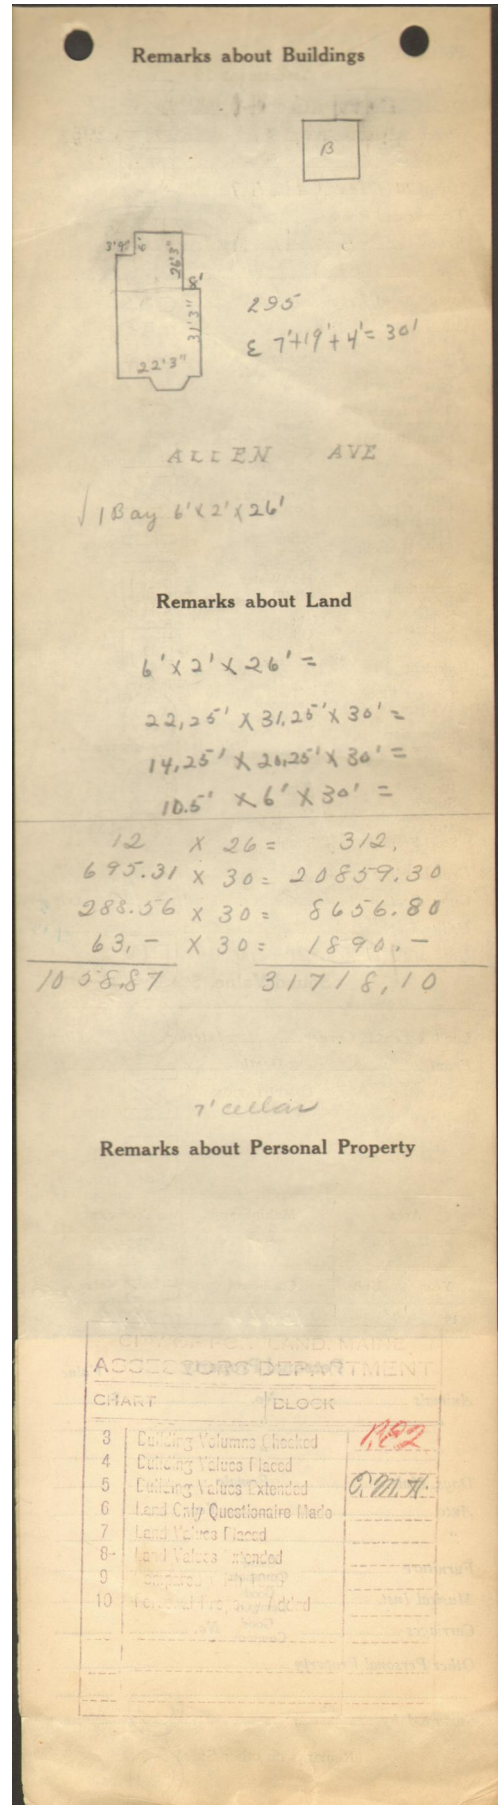 Remarks about Buildings
B
3'9" 6' 26'3"
8'
31'3"
22'3"
295
ε 7'+19'+4'= 30'
ALLEN AVE
√ 1 Bay 6'x2'x26'
Remarks about Land
6' x 2' x 26' =
22,25' x 31,25' x 30' =
14,25' x 20,25' x 30' =
10.5' x 6' x 30' =
12 x 26 = 312.
695.31 x 30 = 20859.30
288.56 x 30 = 8656.80
63,- x 30 = 1890.-
1058,87 31718,10
7' cellar
Remarks about Personal Property
CITY OF PORTLAND, MAINE
ASSESSORS DEPARTMENT
CHART BLOCK
3 Building Volumns Checked
4 Building Values Placed
5 Building Values Extended O.M.H.
6 Land Only Questionaire Made
7 Land Values Placed
8 Land Values Extended
9
10 Personal Property Added